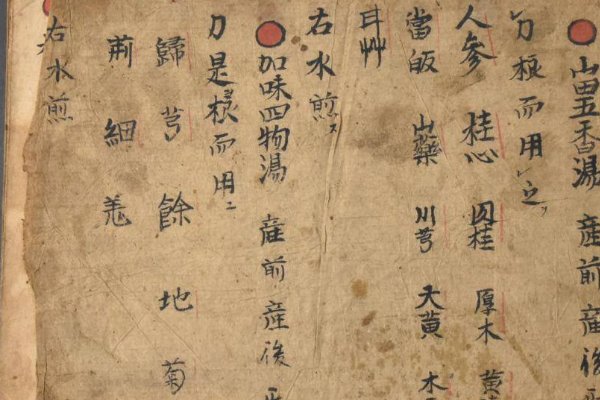 山田五香湯 産前産後
刀根而用
人参 桂心 肉桂 厚木 黄
當皈 山薬 川芎 大黄 木
甘艸
右水煎ス
加味四物湯 産前産後
刀是根而用ニ
歸 芎 餘 地 菊
荊 細 羌
右水煎